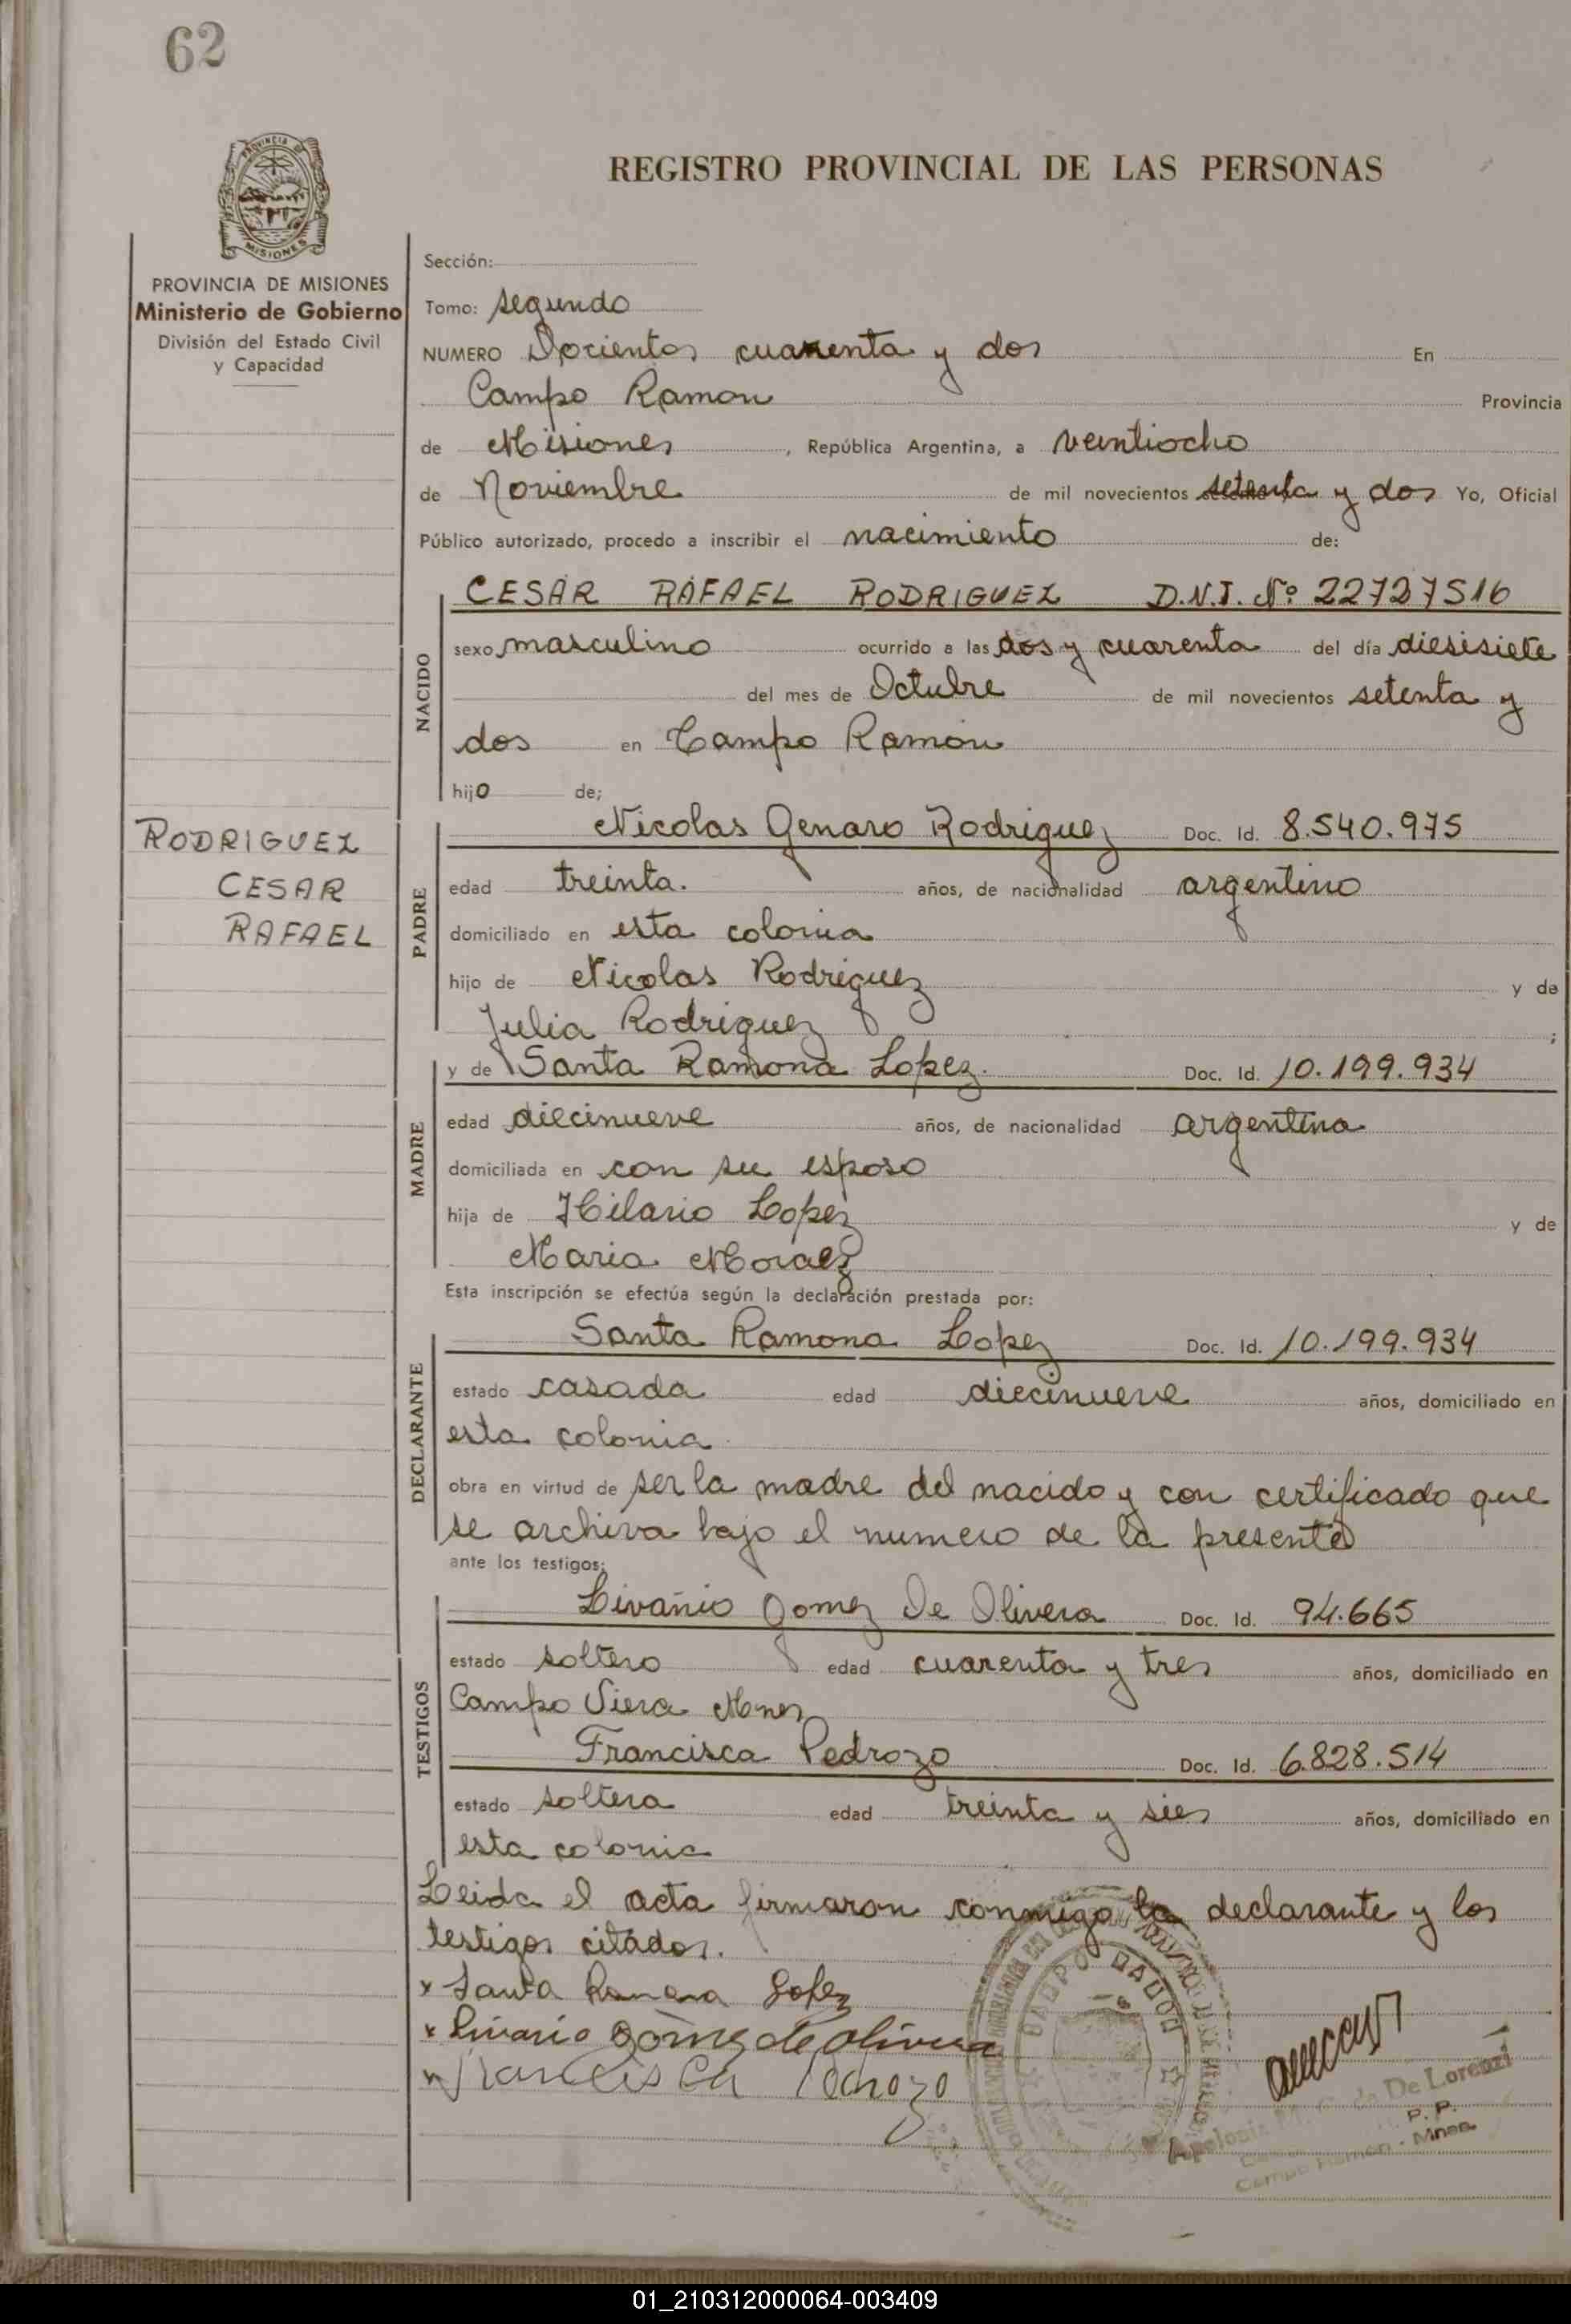 62
REGISTRO PROVINCIAL DE LAS PERSONAS
PROVINCIA DE MISIONES
PROVINCIA DE MISIONES
Ministerio de Gobierno
División del Estado Civil
y Capacidad
Sección:
Tomo: segundo
NUMERO Docientos cuarenta y dos En
Campo Ramon Provincia
de Misiones, República Argentina, a veintiocho
de Noviembre de mil novecientos setenta y dos Yo, Oficial
Público autorizado, procedo a inscribir el nacimiento de:
NACIDO
CESAR RAFAEL RODRIGUEZ D.N.I. Nº 22727516
sexo masculino ocurrido a las dos y cuarenta del día diesisiete
del mes de Octubre de mil novecientos setenta y
dos en Campo Ramón
hijo de;
RODRIGUEZ
CESAR
RAFAEL
PADRE
Nicolas Genaro Rodriguez Doc. Id. 8.540.975
edad treinta. años, de nacionalidad argentino
domiciliado en esta colonia
hijo de Nicolas Rodriguez y de
Julia Rodriguez ;
MADRE
y de Santa Ramona Lopez. Doc. Id. 10.199.934
edad diecinueve años, de nacionalidad argentina
domiciliada en con su esposo
hija de Hilario Lopez y de
Maria Moraez
Esta inscripción se efectúa según la declaración prestada por:
DECLARANTE
Santa Ramona Lopez Doc. Id. 10.199.934
estado casada edad diecinueve años, domiciliado en
esta colonia
obra en virtud de ser la madre del nacido y con certificado que
se archiva bajo el numero de la presente
ante los testigos:
TESTIGOS
Livañio Gomez De Olivera Doc. Id. 94.665
estado soltero edad cuarenta y tres años, domiciliado en
Campo Viera Mnes
Francisca Pedrozo Doc. Id. 6.828.514
estado soltera edad treinta y sies años, domiciliado en
esta colonia
Leida el acta firmaron conmigo la declarante y los
testigos citados.
x Santa Ramona Lopez
x Livanio Gomez de Olivera
x Francisca Pedrozo
Apolonia M. G. de De Lorenzi
P. P.
Campo Ramón - Mnes.
01_210312000064-003409